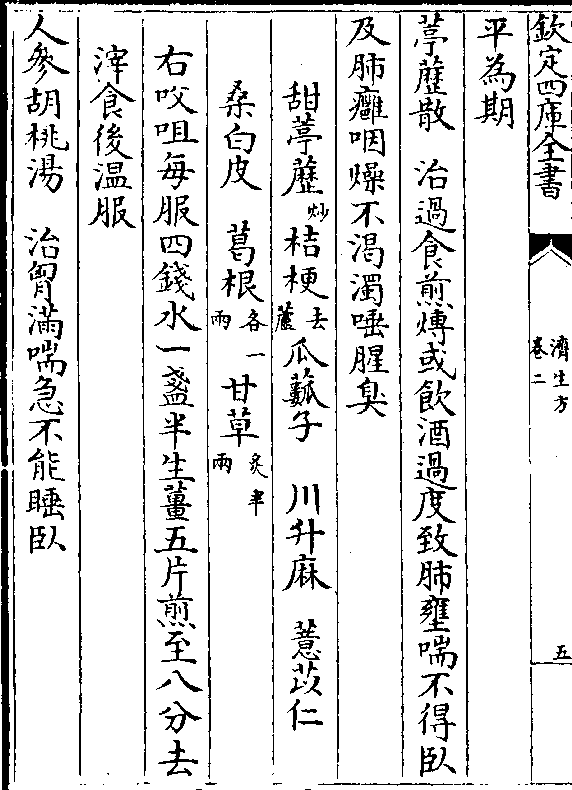 欽定四庫全書
濟生方
卷二
五
平為期
葶藶散　治過食煎煿或飲酒過度致肺壅喘不得臥
及肺癰咽燥不渴濁唾腥臭
甜葶藶炒　桔梗去蘆　瓜蔞子　川升麻　薏苡仁
桑白皮　葛根各一兩　甘草炙半兩
右㕮咀每服四錢水一盞半生薑五片煎至八分去
滓食後温服
人參胡桃湯　治胷滿喘急不能睡臥